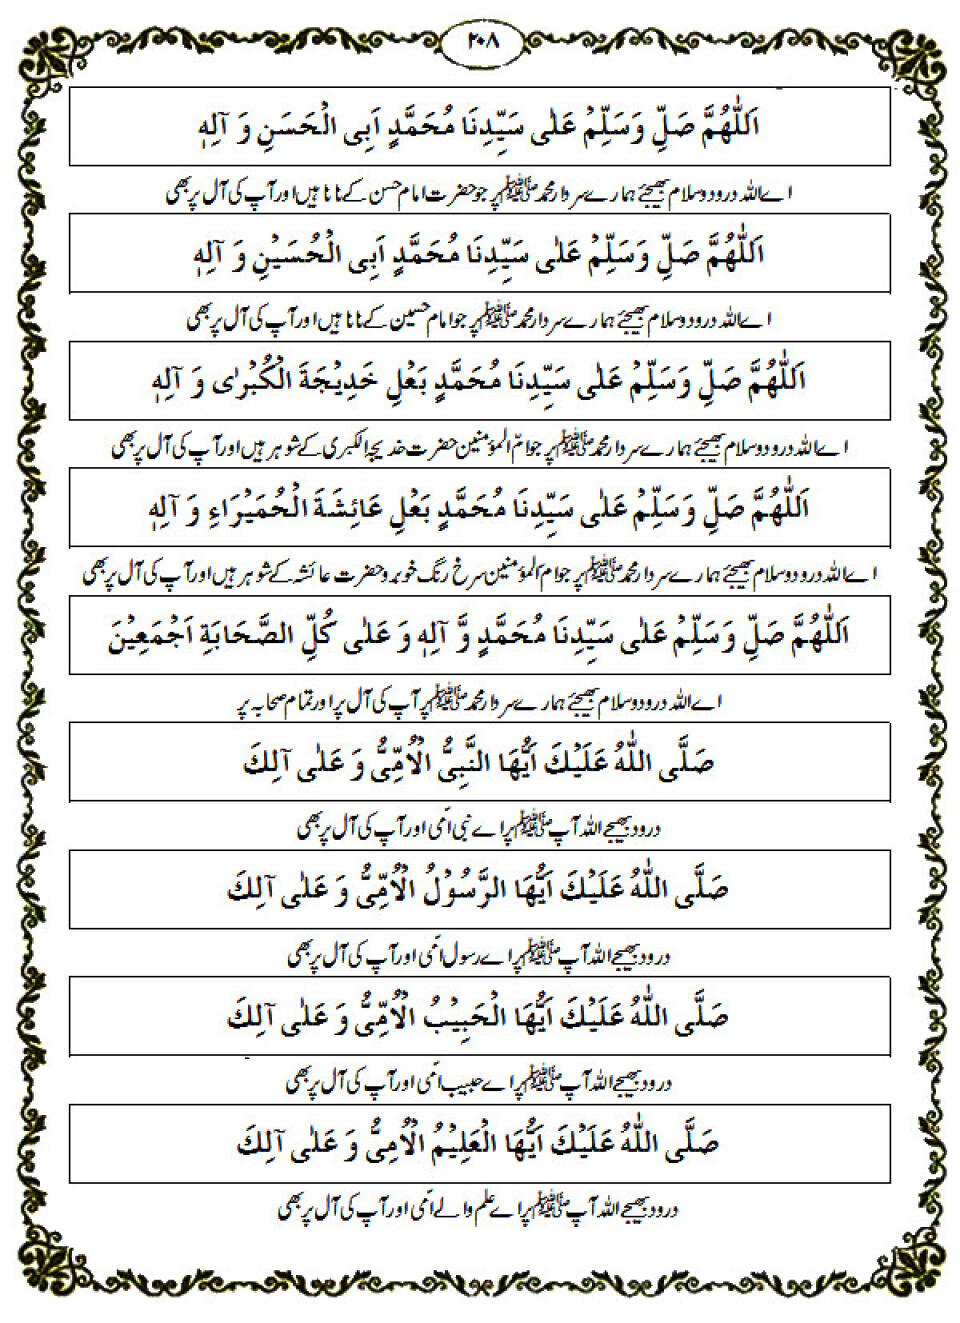 ۲۰۸
اَللّٰهُمَّ صَلِّ وَسَلِّمْ عَلٰى سَيِّدِنَا مُحَمَّدٍ اَبِى الْحَسَنِ وَ آلِهٖ
اے اللہ درود و سلام بھیجئے ہمارے سردار محمد ﷺ پر جو حضرت امام حسن کے نانا ہیں اور آپ کی آل پر بھی
اَللّٰهُمَّ صَلِّ وَسَلِّمْ عَلٰى سَيِّدِنَا مُحَمَّدٍ اَبِى الْحُسَيْنِ وَ آلِهٖ
اے اللہ درود و سلام بھیجئے ہمارے سردار محمد ﷺ پر جو امام حسین کے نانا ہیں اور آپ کی آل پر بھی
اَللّٰهُمَّ صَلِّ وَسَلِّمْ عَلٰى سَيِّدِنَا مُحَمَّدٍ بَعْلِ خَدِيْجَةَ الْكُبْرٰى وَ آلِهٖ
اے اللہ درود و سلام بھیجئے ہمارے سردار محمد ﷺ پر جو امّ المؤمنین حضرت خدیجہ الکبری کے شوہر ہیں اور آپ کی آل پر بھی
اَللّٰهُمَّ صَلِّ وَسَلِّمْ عَلٰى سَيِّدِنَا مُحَمَّدٍ بَعْلِ عَائِشَةَ الْحُمَيْرَاءِ وَ آلِهٖ
اے اللہ درود و سلام بھیجئے ہمارے سردار محمد ﷺ پر جو ام المؤمنین سرخ رنگ خوبرو حضرت عائشہ کے شوہر ہیں اور آپ کی آل پر بھی
اَللّٰهُمَّ صَلِّ وَسَلِّمْ عَلٰى سَيِّدِنَا مُحَمَّدٍ وَّ آلِهٖ وَ عَلٰى كُلِّ الصَّحَابَةِ اَجْمَعِيْنَ
اے اللہ درود و سلام بھیجئے ہمارے سردار محمد ﷺ پر آپ کی آل پر اور تمام صحابہ پر
صَلَّى اللّٰهُ عَلَيْكَ اَيُّهَا النَّبِىُّ الْاُمِّىُّ وَ عَلٰى آلِكَ
درود بھیجے اللہ آپ ﷺ پر اے نبی امّی اور آپ کی آل پر بھی
صَلَّى اللّٰهُ عَلَيْكَ اَيُّهَا الرَّسُوْلُ الْاُمِّىُّ وَ عَلٰى آلِكَ
درود بھیجے اللہ آپ ﷺ پر اے رسول امّی اور آپ کی آل پر بھی
صَلَّى اللّٰهُ عَلَيْكَ اَيُّهَا الْحَبِيْبُ الْاُمِّىُّ وَ عَلٰى آلِكَ
درود بھیجے اللہ آپ ﷺ پر اے حبیب امّی اور آپ کی آل پر بھی
صَلَّى اللّٰهُ عَلَيْكَ اَيُّهَا الْعَلِيْمُ الْاُمِىُّ وَ عَلٰى آلِكَ
درود بھیجے اللہ آپ ﷺ پر اے علم والے امّی اور آپ کی آل پر بھی